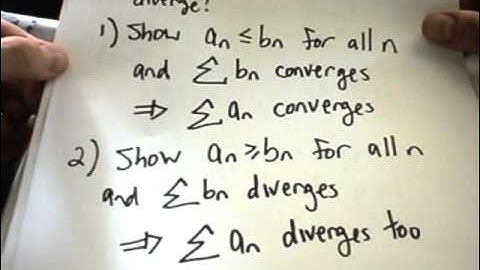 diverge?
1) Show an ≤ bn for all n
and ∑ bn converges
⇒ ∑ an converges
2) Show an ≥ bn for all n
and ∑ bn diverges
⇒ ∑ an diverges too